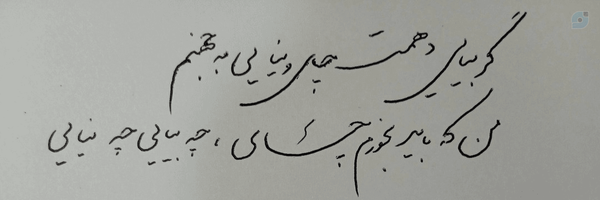 گر بیایی دهمت چای و نیایی به جهنم
من که باید بخورم چای، چه بیایی چه نیایی